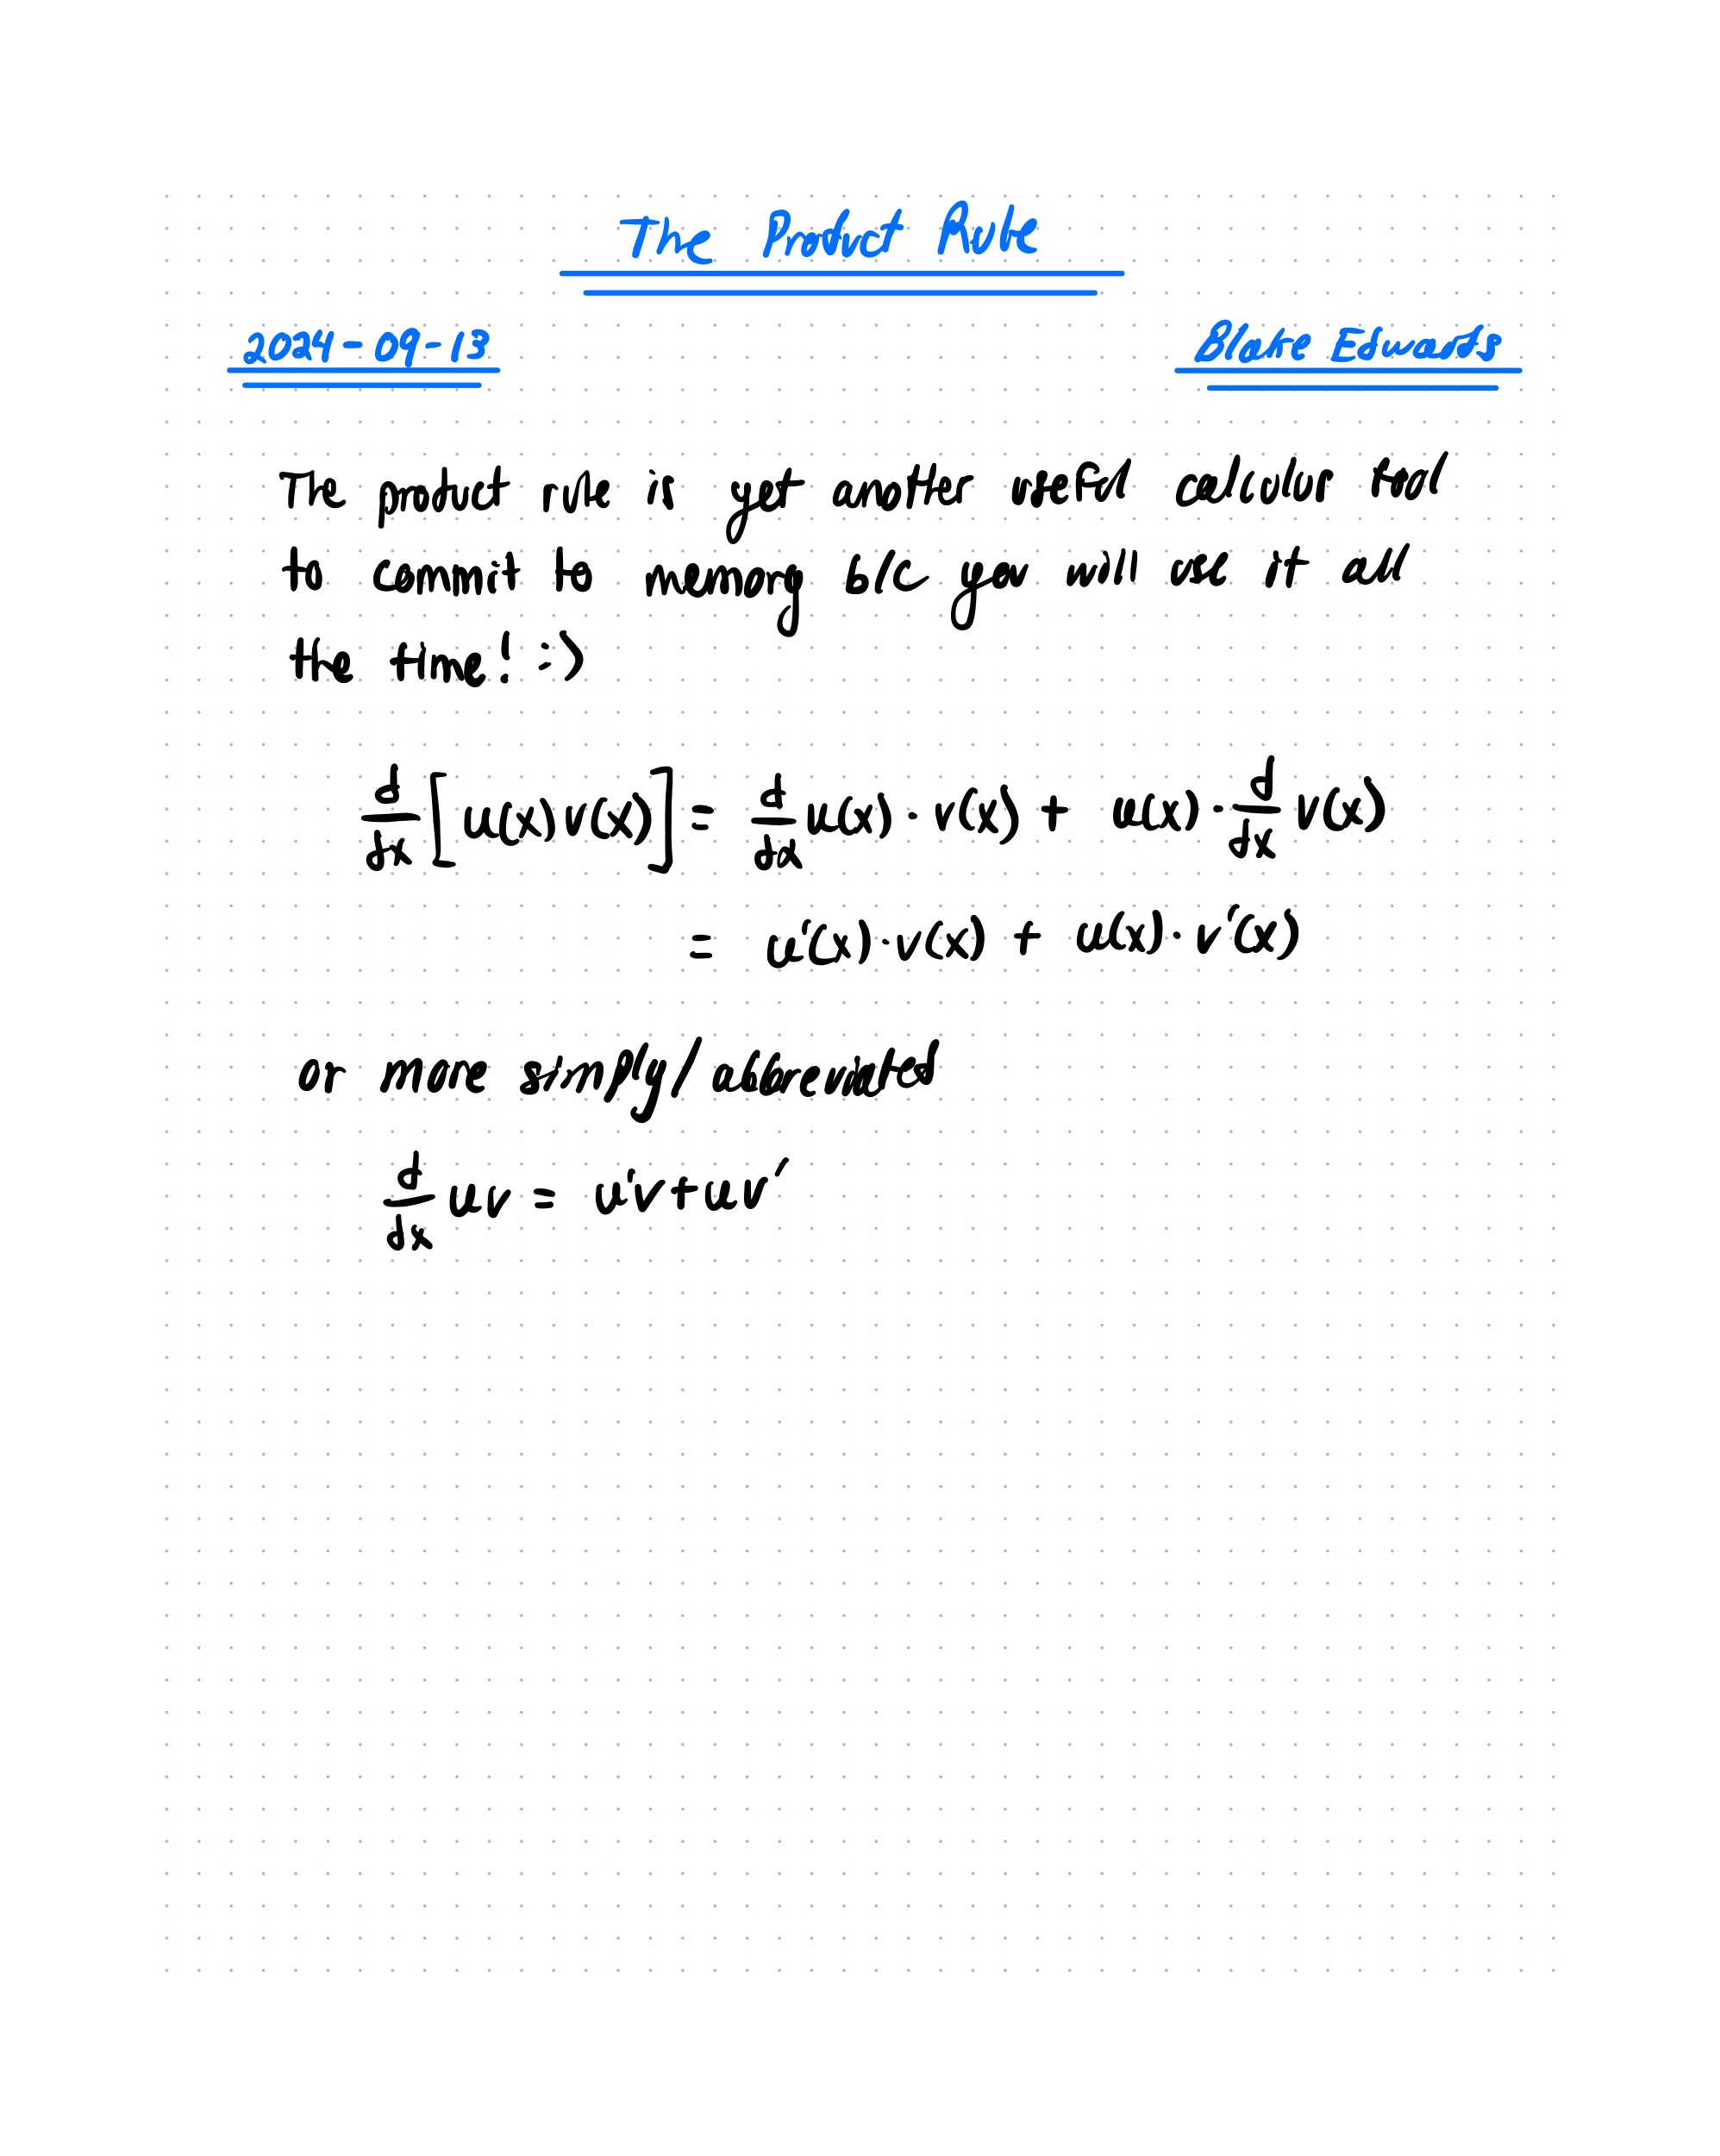 The Product Rule
2024-09-13 Blake Edwards
The product rule is yet another useful calculus tool
to commit to memory b/c you will use it all
the time! :)
d/dx [u(x) v(x)] = d/dx u(x) · v(x) + u(x) · d/dx v(x)
= u'(x) · v(x) + u(x) · v'(x)
or more simply/abbreviated
d/dx uv = u'v + uv'